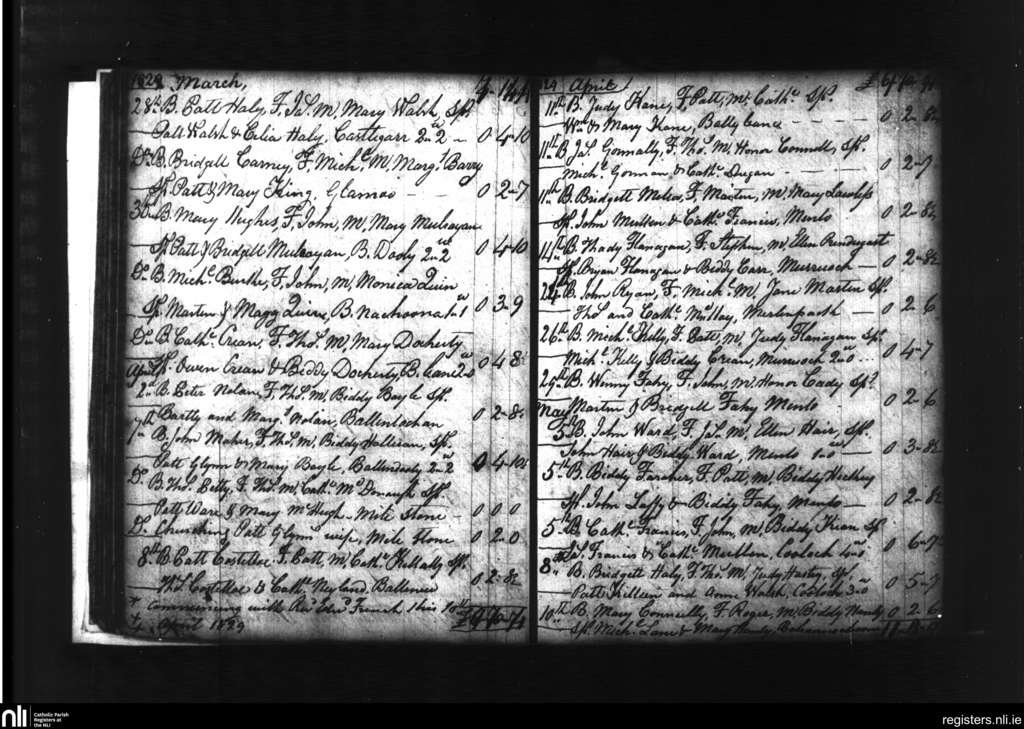 1829 March,
28th B. Patt Haly, F. Jas. M, Mary Walsh, Sps.
Patt Walsh & Celia Haly, Castlegarr 2nd 2 — 0 4-10
Do. B. Bridgett Carney, F, Michl. M, Margt. Barry
Sp. Patt & Mary King. Glamas — 0 2-7
B. Mary Hughes, F, John, M, Mary Mulrayan
Sp. Patt & Bridgett Mulrayan, B. Dooly 2nd 2 0 4-10
Do. B. Michl. Burke, F, John, M, Monica Quin
Sp. Martin & Magy Quirre, B. nachoona 1 0 3-9
Do. B. Cathe. Crean, F. Thos. M, Mary Docherty
Sp. Owen Crean & Biddy Docherty, B. 0 4 8
2nd B. Peter Nolan, F. Thos. M, Biddy Boyle Sps.
Bartly and Margt. Nolan, Ballinlochan 0 2-8½
7th B. John Maher, F. Thos. M, Biddy Hallinan, Sps.
Patt Glynn & Mary Boyle, Ballindooly 2nd 2 0 4-10½
Do. B. Thos. Petty, F. Thos. M, Cathe. McDonaugh Sps.
Patt Ware & Mary McHugh. Mile Stone — 0 0 0
Do. Churching Patt Glynn's wife, Mile Stone 0 2 0
8th B. Patt Costelloe F. Patt, M, Cathe. Sps.
Thos. Costelloe & Cathe. Neyland, 0 2-8½
* commencing with Revd. Edwd. French this 10th
April 1829
April
11th B. Judy Kane, F. Patt, M, Cathe. Sps.
Wm. & Mary Kane, Bally — 0 2-8½
11th B. Jas. Gonnally, F. Thos. M, Honor Connell, Sps.
Michl. Gorman & Cathe. Dugan — 0 2-7
11th B. Bridgett, F, Martin, M, Mary Lawless
Sp. John Mullen & Cathe. Francis, Menlo 0 2-8½
14th B. Thady Flanagan, F. Stephen, M, Ellen Prendergast
Sp. Bryan Flanagan & Biddy Carr, Murrough — 0 2-8½
24th B. John Ryan, F. Michl. M, Jane Martin Sps.
Thos. and Cathe. Mullay, Merlinpark — 0 2-6
26th B. Michl. Kelly, F. Patt, M, Judy Flanagan Sps.
Michl. Kelly & Biddy Crean, Murrough 2 0 4-7
29th B. Winny Fahy, F. John, M, Honor Cady Sps.
Martin & Bridgett Fahy Menlo 0 2-6
May
3rd B. John Ward, F. Jas. M, Ellen Hair, Sps.
John Hair, & Biddy Ward, Menlo 1 0 3-8½
5th B. Biddy Faraher, F. Patt, M, Biddy Hickey
Sp. John Laffy & Biddy Fahy, Menlo — 0 2-8½
5th B. Cathe. Francis, F. John, M, Biddy Kean Sp
Francis & Cathe. Mullen, Cooloch 0 6-7½
8th B. Bridgett Haly, F. Thos. M, Judy Sps.
Patt Killeen and Anne Walsh, Cooloch 3 0 5-7
10th B. Mary Connelly, F. Roger, M, Biddy 0 2-6
Sp. Michl. Lane & Mary
nli
Catholic Parish
Registers at
the NLI
registers.nli.ie